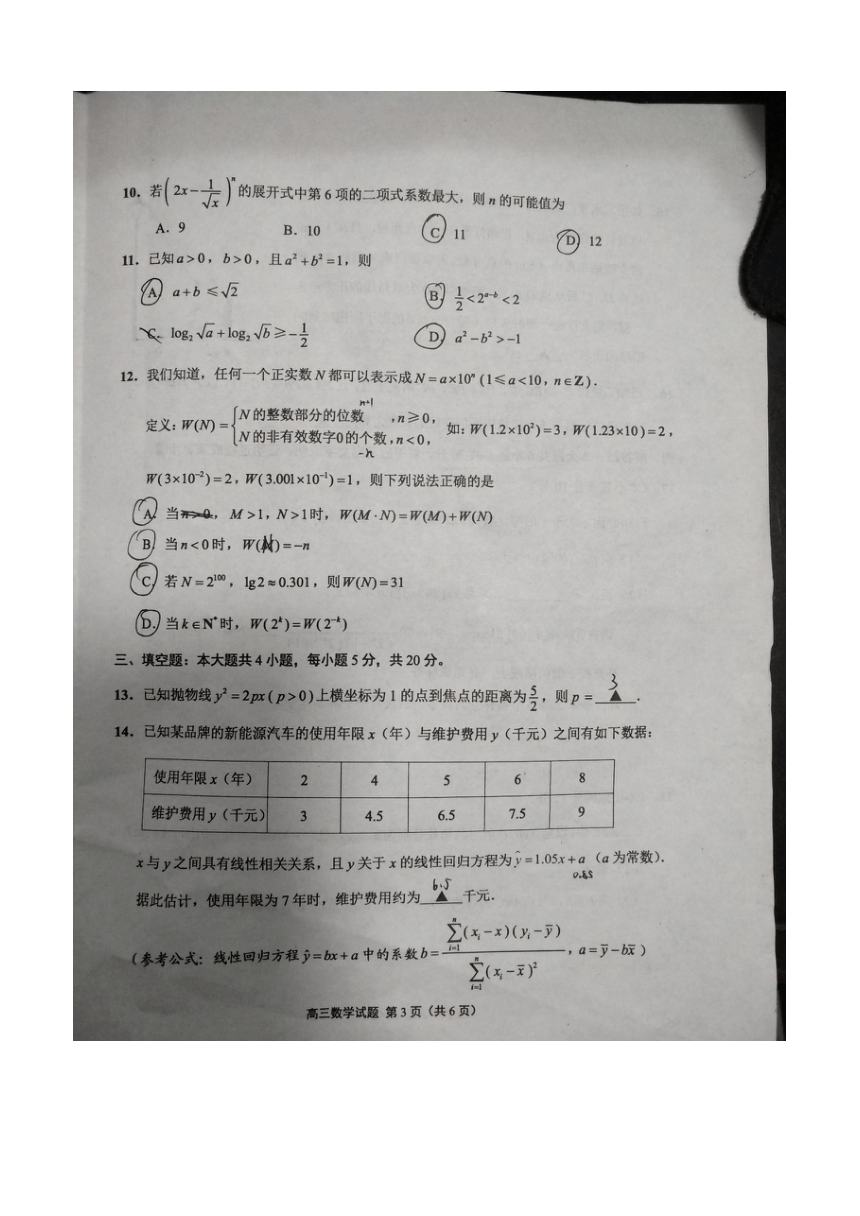 10. 若(2x-1/√x)ⁿ的展开式中第6项的二项式系数最大,则n的可能值为
A. 9 B. 10 C 11 D. 12
11. 已知a>0,b>0,且a²+b²=1,则
A. a+b≤√2 B. 1/2<2^(a-b)<2
C. log₂√a+log₂√b≥-1/2 D. a²-b²>-1
12. 我们知道,任何一个正实数N都可以表示成N=a×10ⁿ(1≤a<10,n∈Z).
n+1
定义:W(N)={N的整数部分的位数,n≥0,
N的非有效数字0的个数,n<0, 如:W(1.2×10²)=3,W(1.23×10)=2,
-n
W(3×10⁻²)=2,W(3.001×10⁻¹)=1,则下列说法正确的是
A. 当n>0,M>1,N>1时,W(M·N)=W(M)+W(N)
B. 当n<0时,W(N)=-n
C. 若N=2¹⁰⁰,lg2≈0.301,则W(N)=31
D. 当k∈N*时,W(2ᵏ)=W(2⁻ᵏ)
三、填空题:本大题共4小题,每小题5分,共20分。
3
13. 已知抛物线y²=2px(p>0)上横坐标为1的点到焦点的距离为5/2,则p=▲.
14. 已知某品牌的新能源汽车的使用年限x(年)与维护费用y(千元)之间有如下数据:
使用年限x(年) 2 4 5 6 8
维护费用y(千元) 3 4.5 6.5 7.5 9
x与y之间具有线性相关关系,且y关于x的线性回归方程为ŷ=1.05x+a(a为常数).
0.85
6.5
据此估计,使用年限为7年时,维护费用约为▲千元.
(参考公式:线性回归方程ŷ=bx+a中的系数b=∑ⁿᵢ₌₁(xᵢ-x)(yᵢ-ȳ)/∑ⁿᵢ₌₁(xᵢ-x̄)²,a=ȳ-bx̄)
高三数学试题 第3页(共6页)